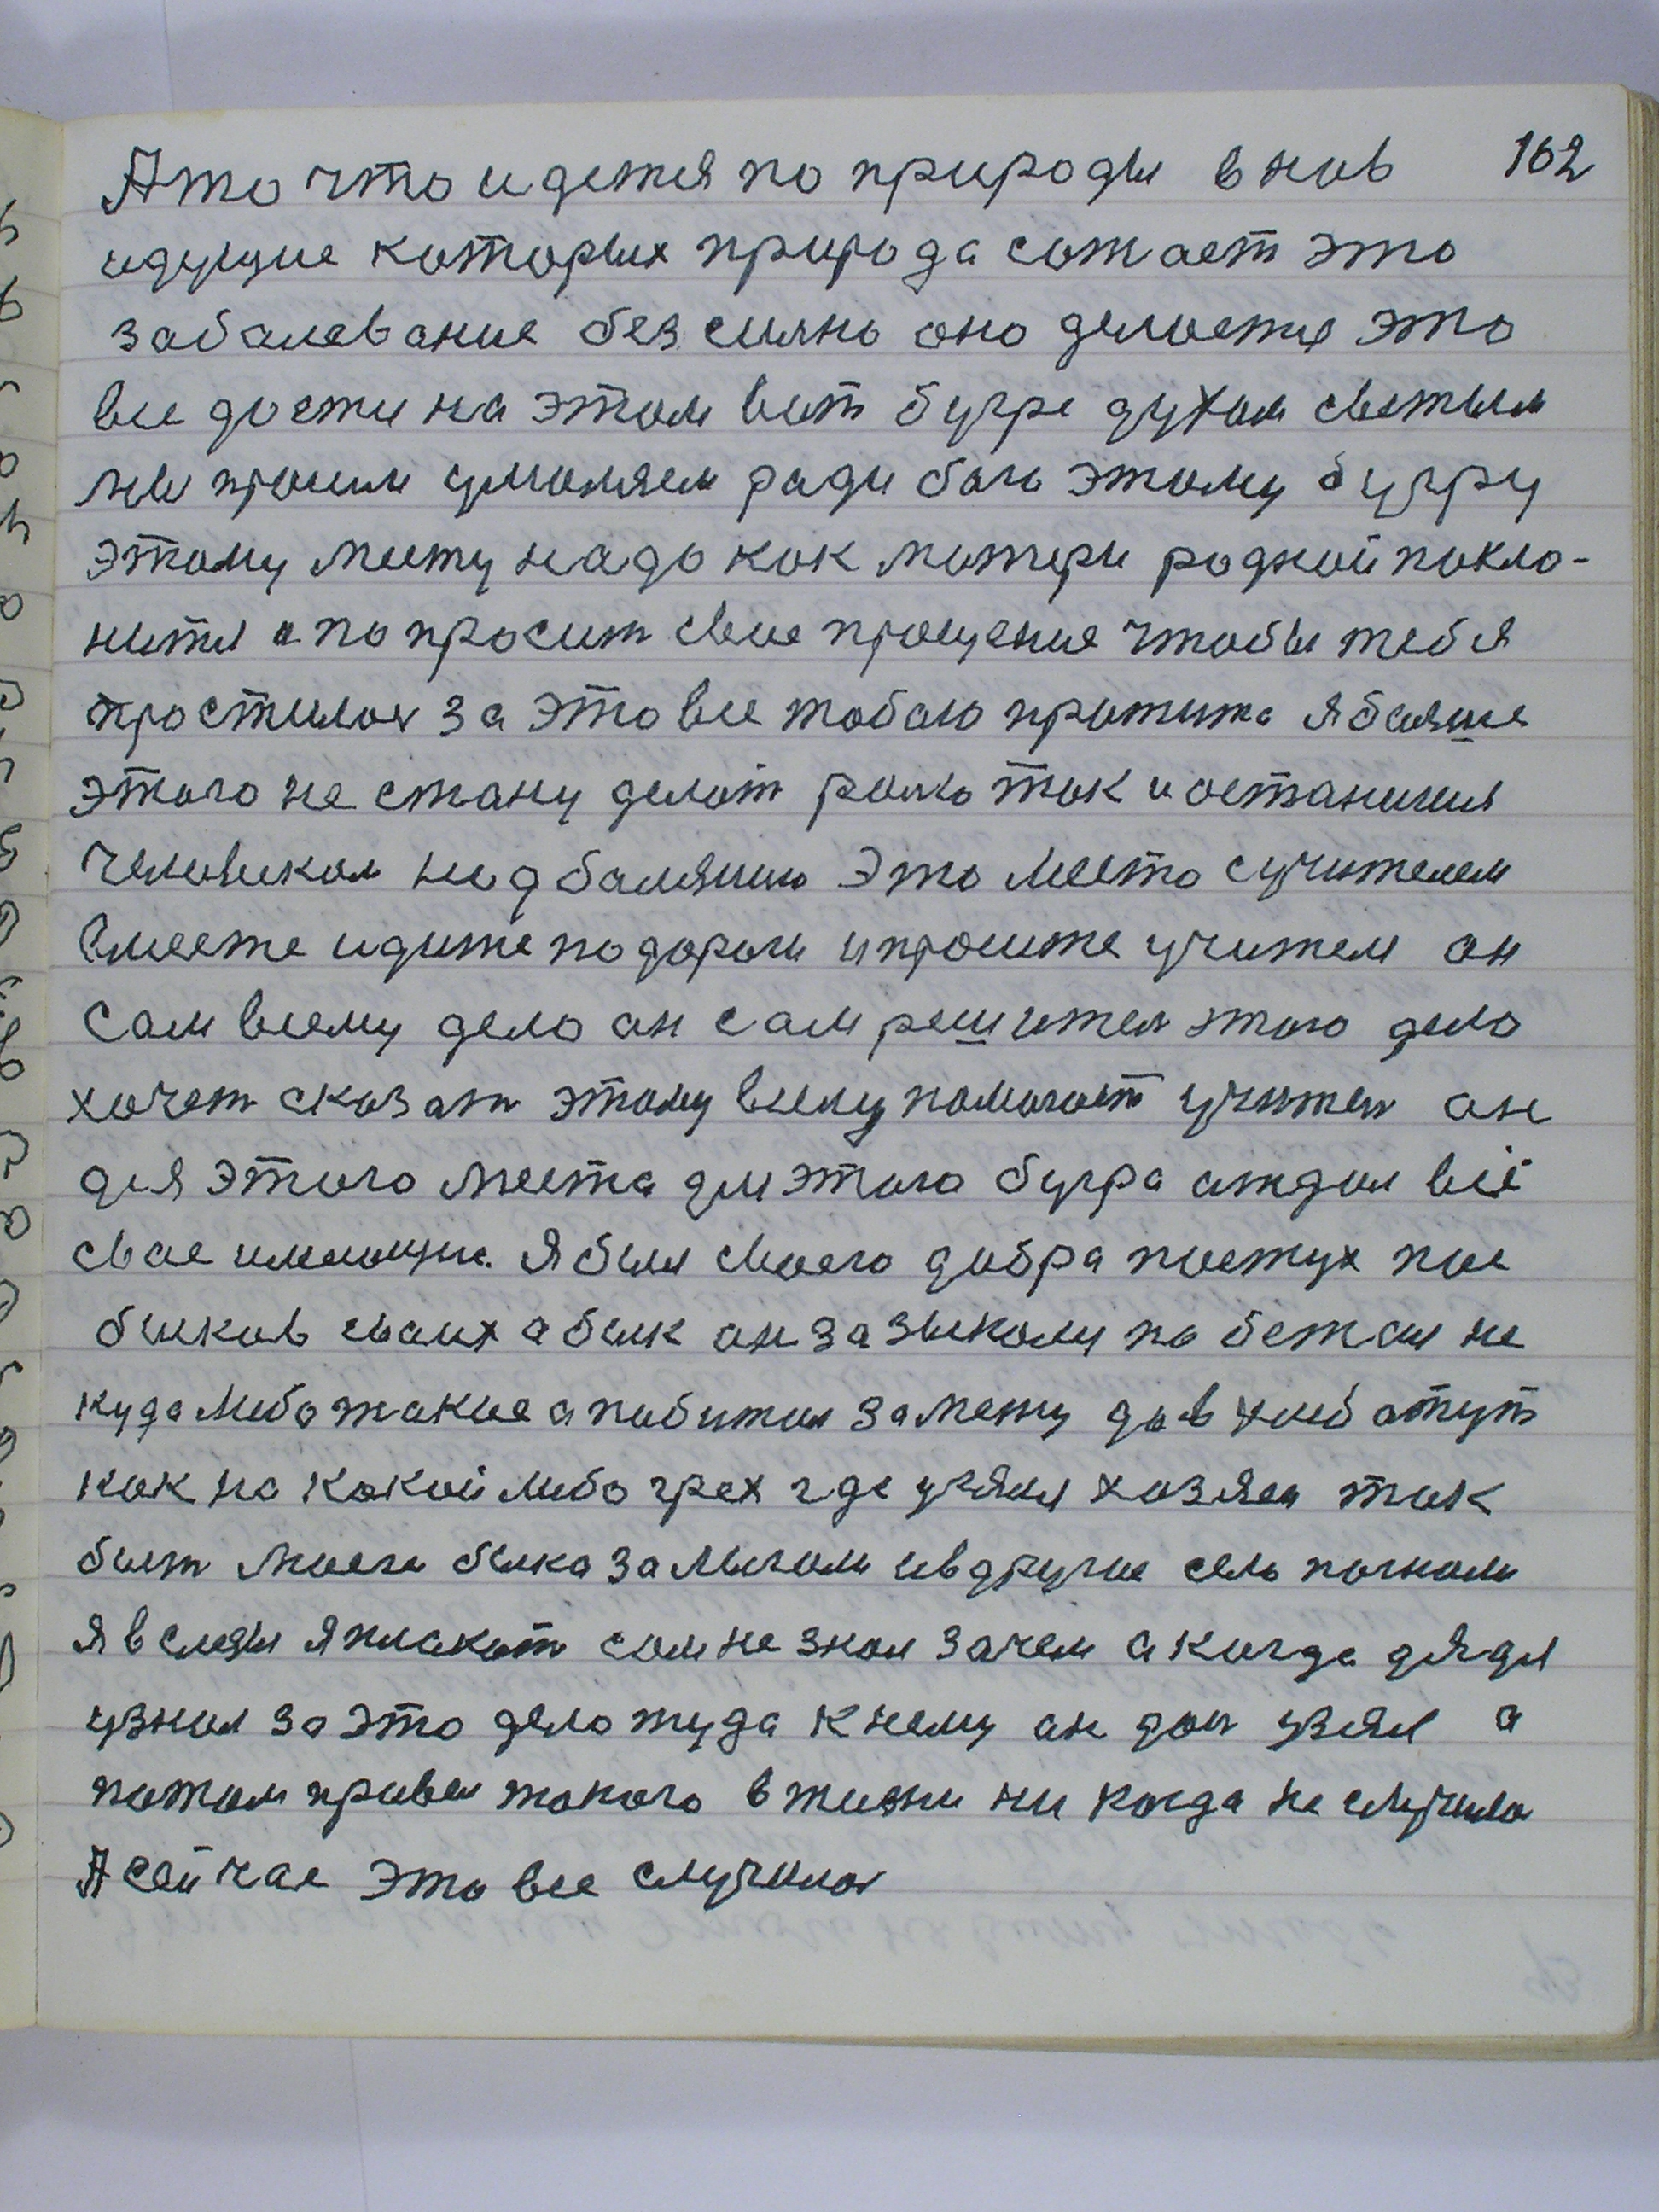 162
А то что идется по природы внов
идущие которых природа сожает это
забалевание без силно оно делается это
все дости на этом вот бугре духом светым
мы просим умоляем ради бога этому бугру
этому месту надо как матери родной покло-
нится и попросит свое прощение чтобы тебя
простилос за это все тобою прожито я боляше
этого не стану делат роль так и останимся
человеком не д болянию Это место сучителем
вместе идите по дороги и просите учителя он
Сам всему дело он сам решител этого дело
хочет сказат этому всему помогает учител он
для этого места для этого бугра отдал всё
свое имеющие. Я был своего добра пастух пас
быков своих а бык он за зыкому по бежал не
куда либо такие а побитал за межу да в хлеб а тут
как на какой либо грех где узялся хазяен так
бит моего быка за лигом ив другие село погнали
я в следы я плакат сам не знал зачем а когда дядя
узнал за это дело туда к нему он дал узял а
потом привел такого в жизни ни когда не случило
А сейчас это все случилос